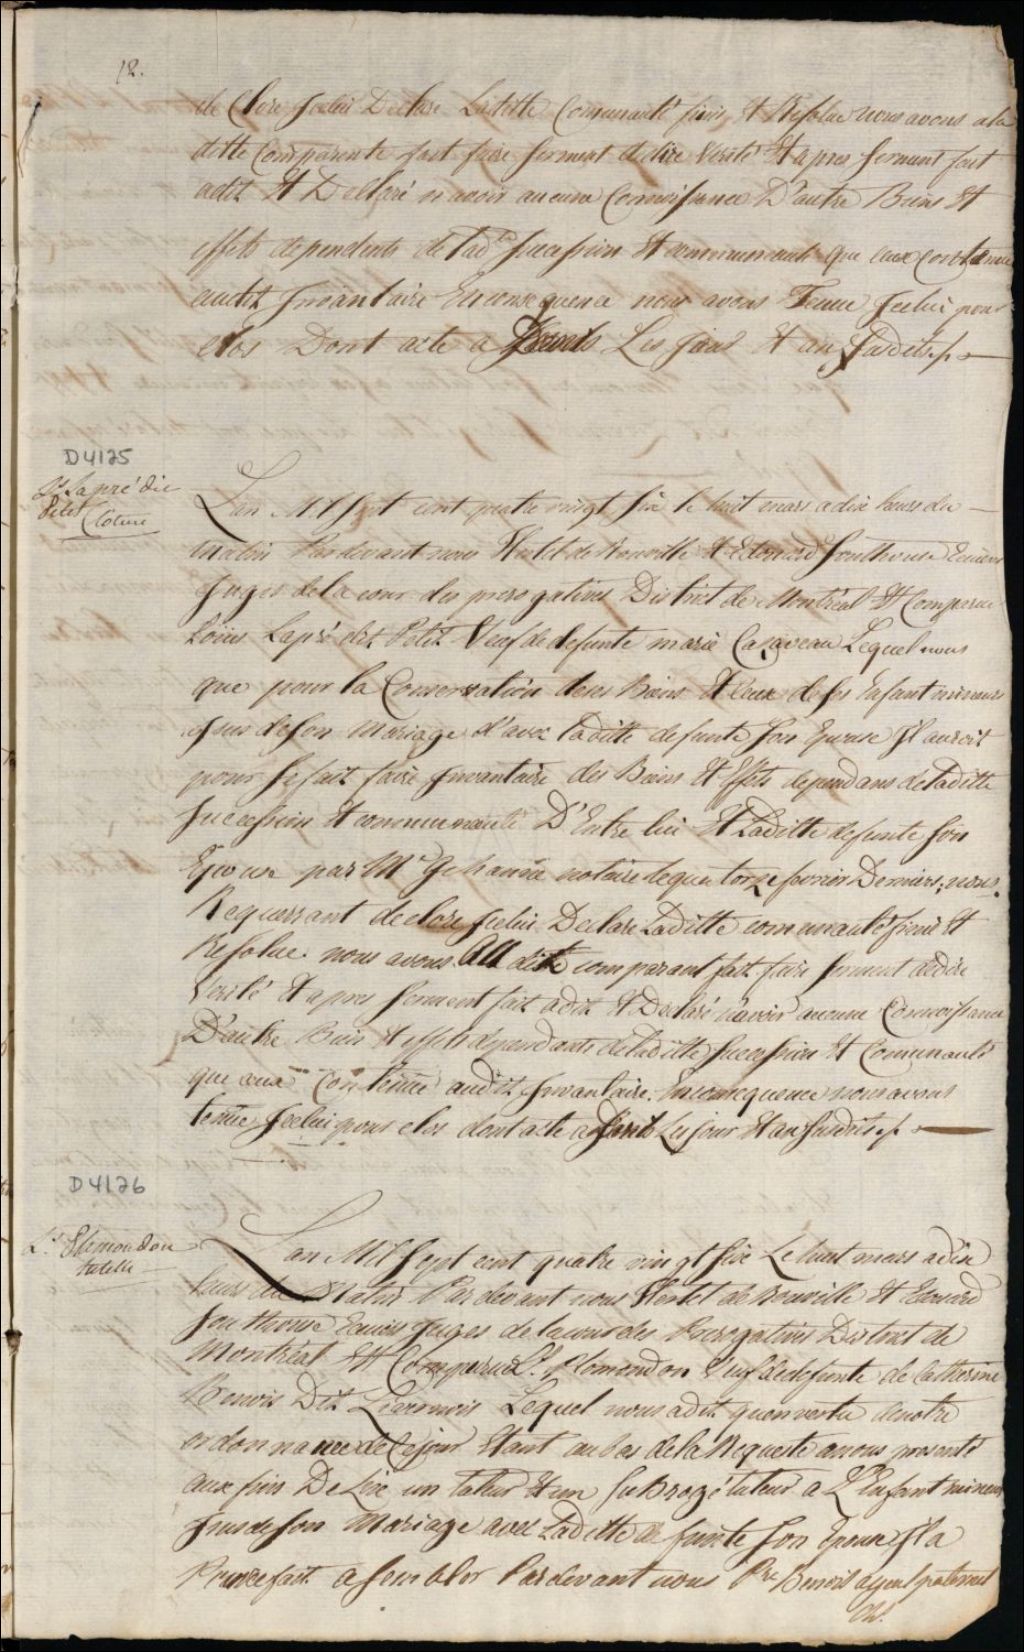 12.
de Clore Jcelui Declare Laditte Communauté finie, Et Resolue nous avons a la
ditte Comparente fait faire serment de dire Verité Et apres serment fait
adit Et Declaré n'avoir aucune Connoissance D'autre Biens Et
effets dependents de lad.e succession Et communauté que ceux contenue
audit Jnvantaire En consequence nous avons Tenue Jcelui pour
clos Dont acte a Les jour Et an susdits ./.
D4125
Ls Lapré dit
Petit Cloture
Lan Mil sept cent quatre vingt six le huit mars a dix heures du
matin Pardevant nous Hertel de Rouville Et Edouard Southouse Ecuiers
Juges de la cour des prerogatives District de Montréal Et Comparu
Loüis Lapré dit Petit Veuf de defunte marie Casaveau Lequel nous
que pour la Conservation de ses Biens Et Ceux de ses Enfant mineurs
issus de son Mariage d'avec laditte defunte son Epouse Jl auroit
pour se fait faire Jnvantaire des Biens Et Effets dependans de laditte
succession Et communauté D'Entre lui Et Laditte defunte son
Epouse par Mre notaire le quatorze fevrier Dernier, nous
Requerrant de clore Jcelui Declare Laditte communauté finie Et
Resolue. nous avons Au dit comparant fait faire serment de dire
Verité Et apres serment fait adit Et Declaré n'avoir aucune Connoissance
D'autre Biens Et effets dependants de laditte succession Et Communauté
que ceux Contenue audit Jnvantaire. En concequence nous avons
tenue Jcelui pour clos dont acte a Les jour Et an susdits ./.
D4126
L.s Plemondon
tutelle
Lan Mil sept cent quatre vingt six Le huit mars a dix
heures du Matin Pardevant nous Hertel de Rouville Et Edouard
Southouse Ecuiers Juges de la cour des Prerogatives District de
Montréal Et Comparu L.s Plemondon Veuf de defunte de Catherine
Benois Dit Livernois Lequel nous adit quen vertu denotre
ordonnance de Ce jour Etant au bas de la Requeste anous presenté
aux fins De Lire un tuteur Et un subrogé tuteur a L'Enfant mineur
Jssus de son Mariage avec Laditte defunte son Epouse Jl a
fait assembler Pardevant nous Pre Benois ayeul paternel